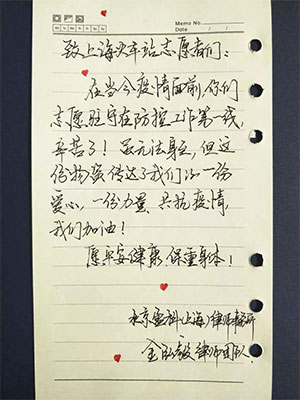 Memo No.
Date / /
致上海火车站志愿者们：
在当今疫情面前，你们
志愿驻守在防控工作第一线，
辛苦了！虽无法身至，但这
份物资传达了我们的一份
爱心，一份力量，共抗疫情，
我们加油！
愿平安健康，保重身体！
北京盈科（上海）律师事务所
律师团队